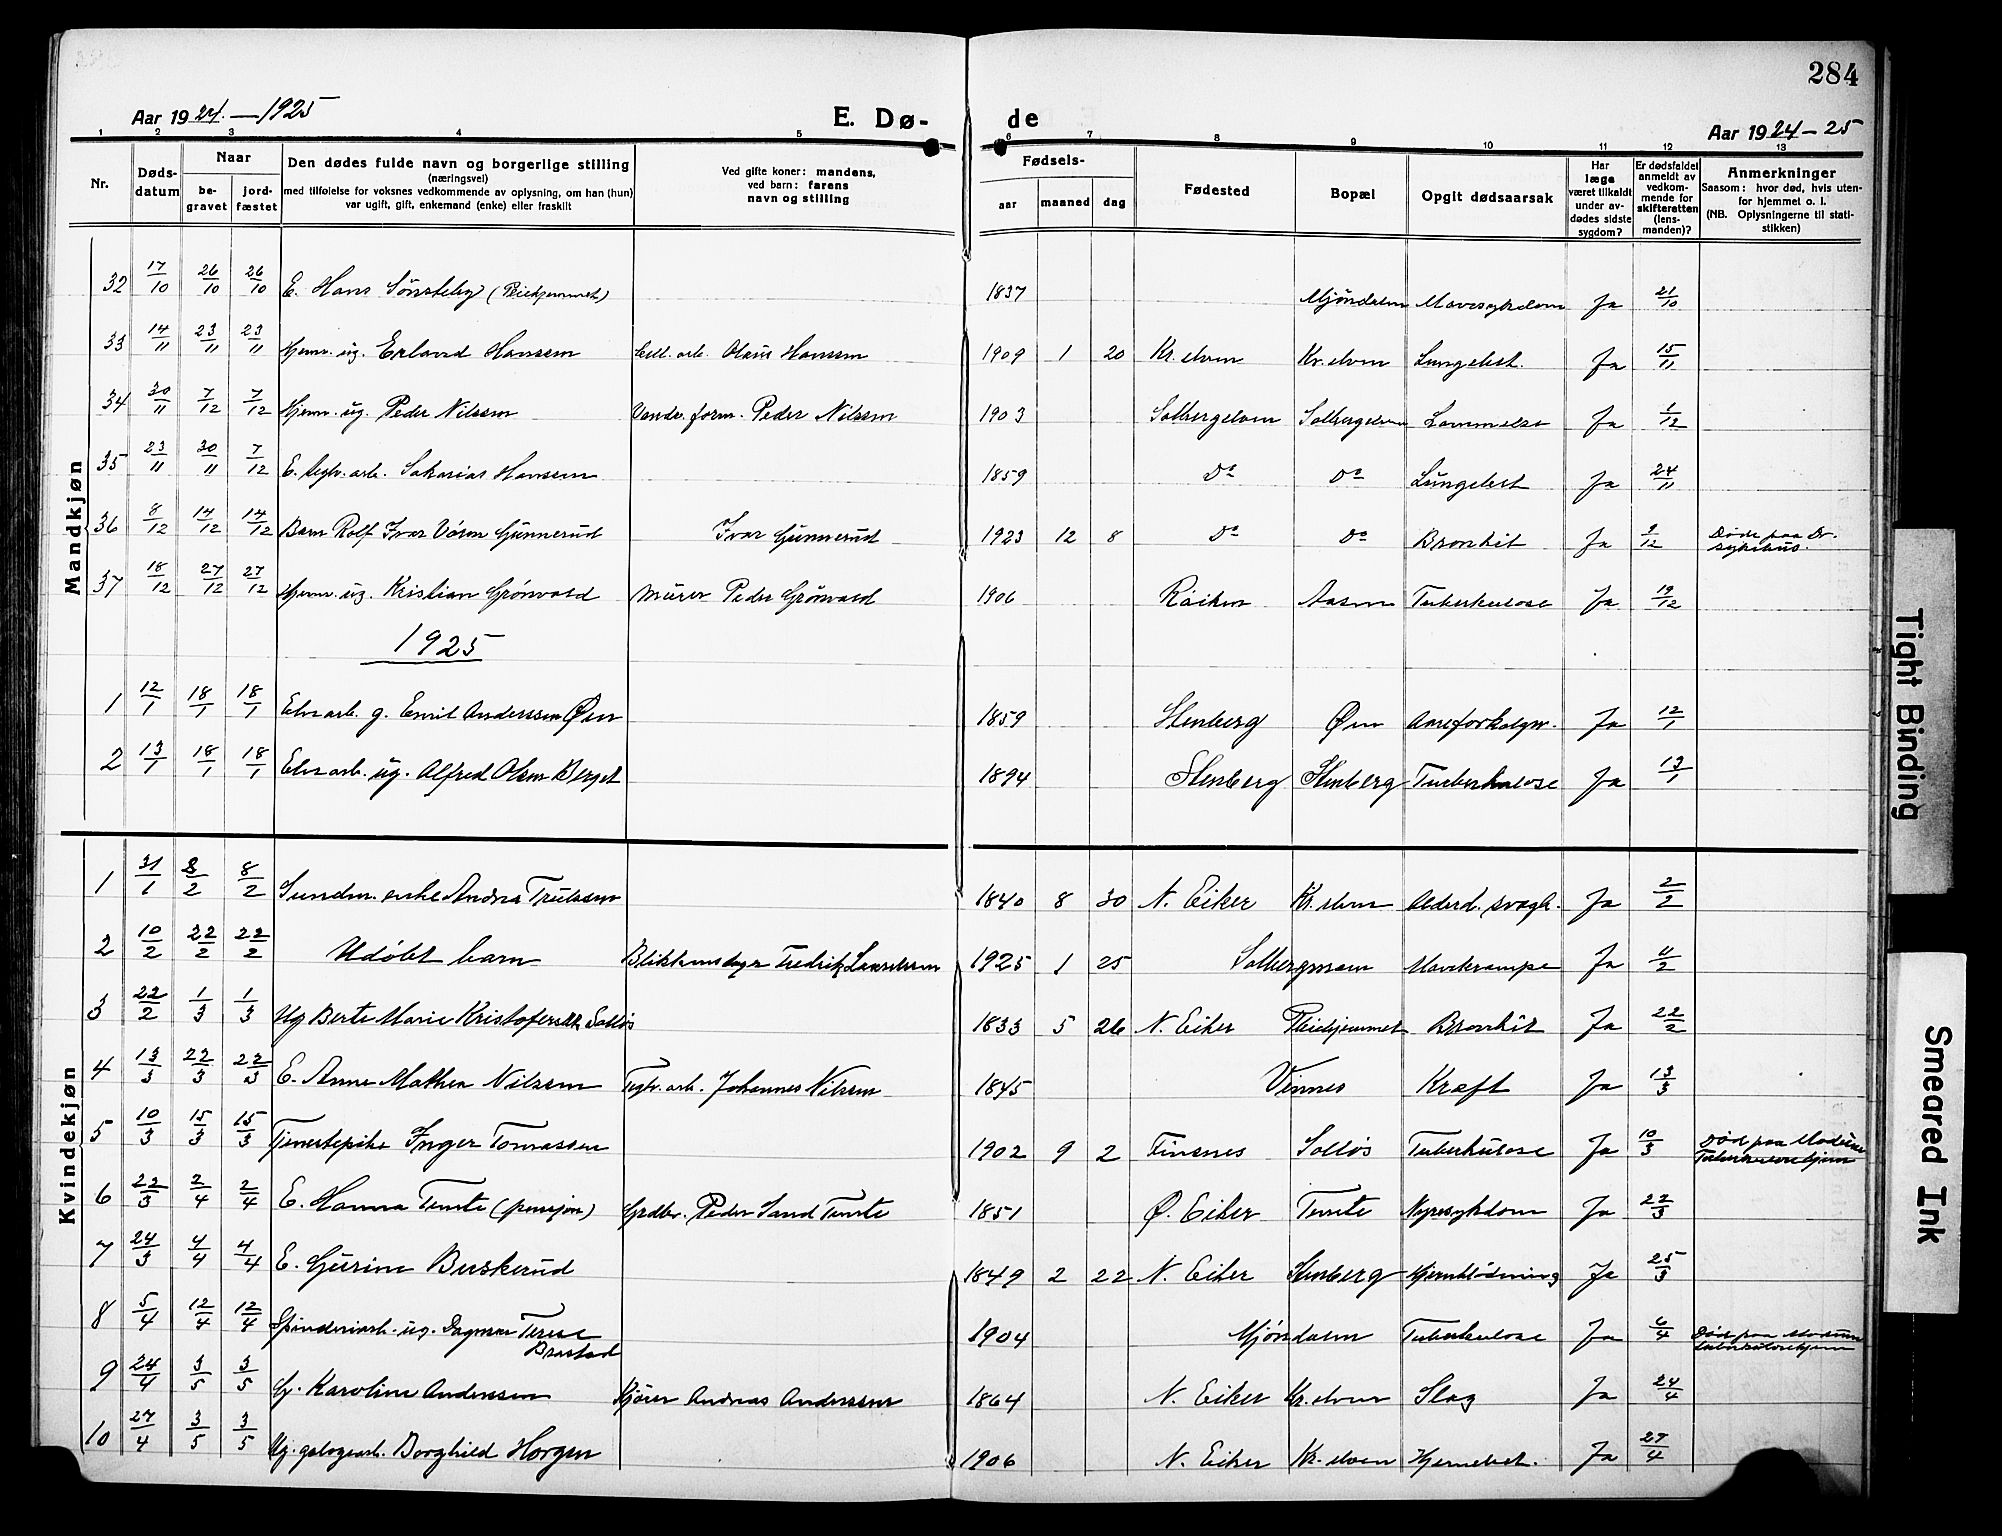 284
Aar 1924. — 1925
E. Dø-
de
Aar 1924 - 25
1 2 3 4 5 6 7 8 9 10 11 12 13
Nr.
Døds-
datum
Naar
be-
gravet
jord-
fæstet
Den dødes fulde navn og borgerlige stilling
(næringsvei)
med tilføielse for voksnes vedkommende av oplysning, om han (hun)
var ugift, gift, enkemand (enke) eller fraskilt
Ved gifte koner: mandens,
ved barn: farens
navn og stilling
Fødsels-
aar
maaned
dag
Fødested
Bopæl
Opgit dødsaarsak
Har
læge
været tilkaldt
under av-
dødes sidste
sygdom?
Er dødsfaldet
anmeldt av
vedkom-
mende for
skifteretten
(lens-
manden)?
Anmerkninger
Saasom: hvor død, hvis uten-
for hjemmet o. l.
(NB. Oplysningerne til stati-
stikken)
Mandkjøn
32 17/10 26/10 26/10 E. Hans Sønsteby (Pleiehjemmet) 1837 Mjøndalen Mavesykdom Ja 21/10
33 14/11 23/11 23/11 Hjemv. ug. Erland Hanssen Cell. arb. Olaus Hanssen 1909 1 20 Kr. elven Kr. elven Lungebet. Ja 15/11
34 30/11 7/12 7/12 Hjemv. ug. Peder Nilssen Peder Nilssen 1903 Solbergelven Solbergelven Lammelse Ja 1/12
35 23/11 30/11 7/12 E. teglv. arb. Sakarias Hanssen 1859 Do Do Lungebet Ja 24/11
36 8/12 14/12 14/12 Barn Rolf Ivar Gunnerud Ivar Gunnerud 1923 12 8 Do Do Bronkit Ja 9/12 Døde paa Dr.
sykehus.
37 18/12 27/12 27/12 Hjemv. ug. Kristian Grønvold Murer Peder Grønvold 1906 Røiken Aasen Tuberkulose Ja 19/12
1925
1 12/1 18/1 18/1 Elvearb. g. Emil Anderssen Øen 1859 Stenberg Øen Aareforkalkn. Ja 12/1
2 13/1 18/1 18/1 Elvearb. ug. Alfred Olsen Berget 1894 Stenberg Stenberg Tuberkulose Ja 13/1
Kvindekjøn
1 31/1 8/2 8/2 enke Andrea Trulssen 1840 8 30 N. Eiker Kr. elven Alderd. svagh. Ja 2/2
2 10/2 22/2 22/2 Udøbt barn Blikkenslager Fredrik Lauritzen 1925 1 25 Solbergmoen Mavekrampe Ja 11/2
3 22/2 1/3 1/3 Ug Berte Marie Kristofersdtr Solløs 1833 5 26 N. Eiker Pleiehjemmet Bronkit Ja 22/2
4 13/3 22/3 22/3 E. Anne Mathea Nilssen Teglv. arb. Johannes Nilssen 1845 Vinnes Kræft Ja 13/3
5 10/3 15/3 15/3 Tjenestepike Inger Tomassen 1902 9 2 Finsnes Solløs Tuberkulose Ja 10/3 Død paa Modum
Tuberkulosehjem
6 22/3 2/4 2/4 E. Hanna Temte (pensjon) Grdbr. Peder Sand Temte 1851 Ø. Eiker Temte Nyresykdom Ja 22/3
7 24/3 4/4 4/4 E. Gurine Buskerud 1849 2 22 N. Eiker Stenberg Hjerneblødning Ja 25/3
8 5/4 12/4 12/4 Spinneriarb. ug. Dagmar Terese
Brastad 1904 Mjøndalen Tuberkulose Ja 6/4 Død paa Modum
tuberkulosehjem
9 24/4 3/5 3/5 G. Karoline Anderssen Kjører Andreas Anderssen 1864 N. Eiker Kr. elven Slag Ja 24/4
10 27/4 3/5 3/5 Ug. galogearb. Borghild Horgen 1906 N. Eiker Kr. elven Hjernebet. Ja 27/4
Tight Binding
Smeared Ink